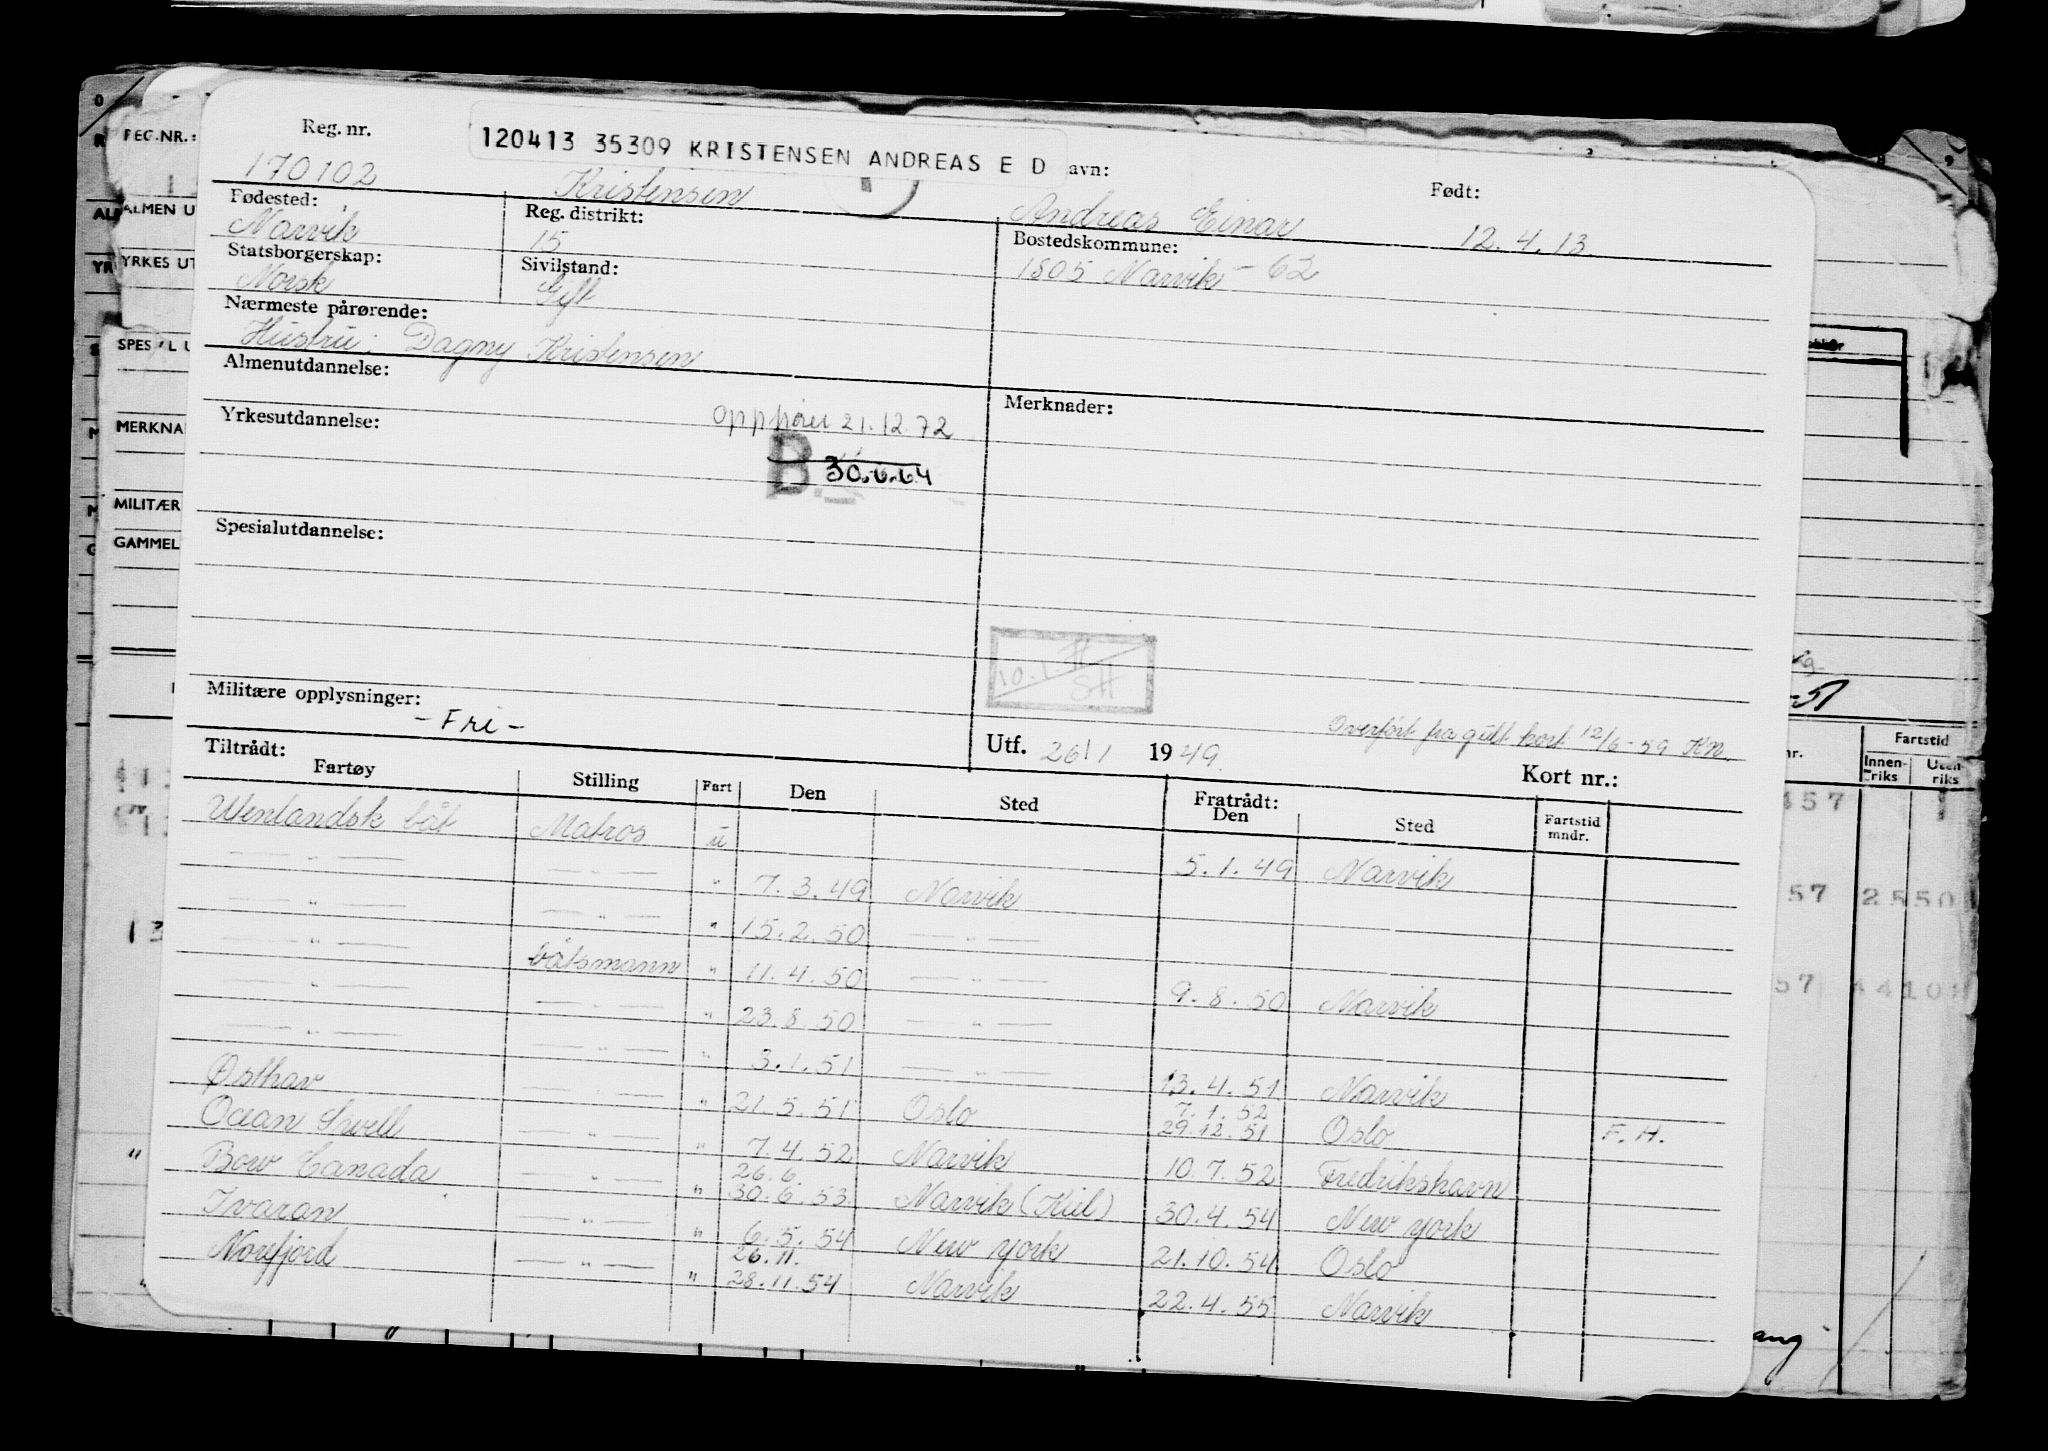 Reg. nr. 120413 35309 KRISTENSEN ANDREAS E D avn: Født:
170102 Kristensen Andreas Einar 12.4.13.
Fødested: Reg. distrikt: Bostedskommune:
Narvik 15 1805 Narvik - 62
Statsborgerskap: Sivilstand:
Norsk Gift
Nærmeste pårørende:
Hustru: Dagny Kristensen
Almenutdannelse: Merknader:
Yrkesutdannelse: opphører 21.12.72
B. 30.6.64
Spesialutdannelse:
10.1.
Militære opplysninger:
- Fri -
Utf. 26/1 1949. Overført fra gult kort 12/6-59 Kn.
Tiltrådt: Kort nr.:
Fartøy Stilling Fart Den Sted Fratrådt: Den Sted Fartstid mndr.
Utenlandsk båt Matros u 5.1.49 Narvik
— " — — " — " 7.3.49 Narvik
— " — — " — " 15.2.50 — " —
— " — båtsmann " 11.4.50 — " — 9.8.50 Narvik
— " — — " — " 23.8.50 — " —
— " — — " — " 3.1.51 — " — 13.4.51 Narvik
Østhav — " — " 21.5.51 Oslo 7.1.52 29.12.51 Oslo F.H.
Ocean Swell — " — " 7.4.52 Narvik 10.7.52 Fredrikshavn
Bow Canada — " — " 26.6. 30.6.53 Narvik (Kiel) 30.4.54 New York
Ivaran — " — " 6.5.54 New York 21.10.54 Oslo
Norefjord — " — " 26.11. 28.11.54 Narvik 22.4.55 Narvik
REG.NR.:
ALMEN U
YRKES UT
SPES
MERKNA
MILITÆR
GAMMEL
nr. Fartstid
Innen-riks Uten-riks
457
57 2550
57 4410